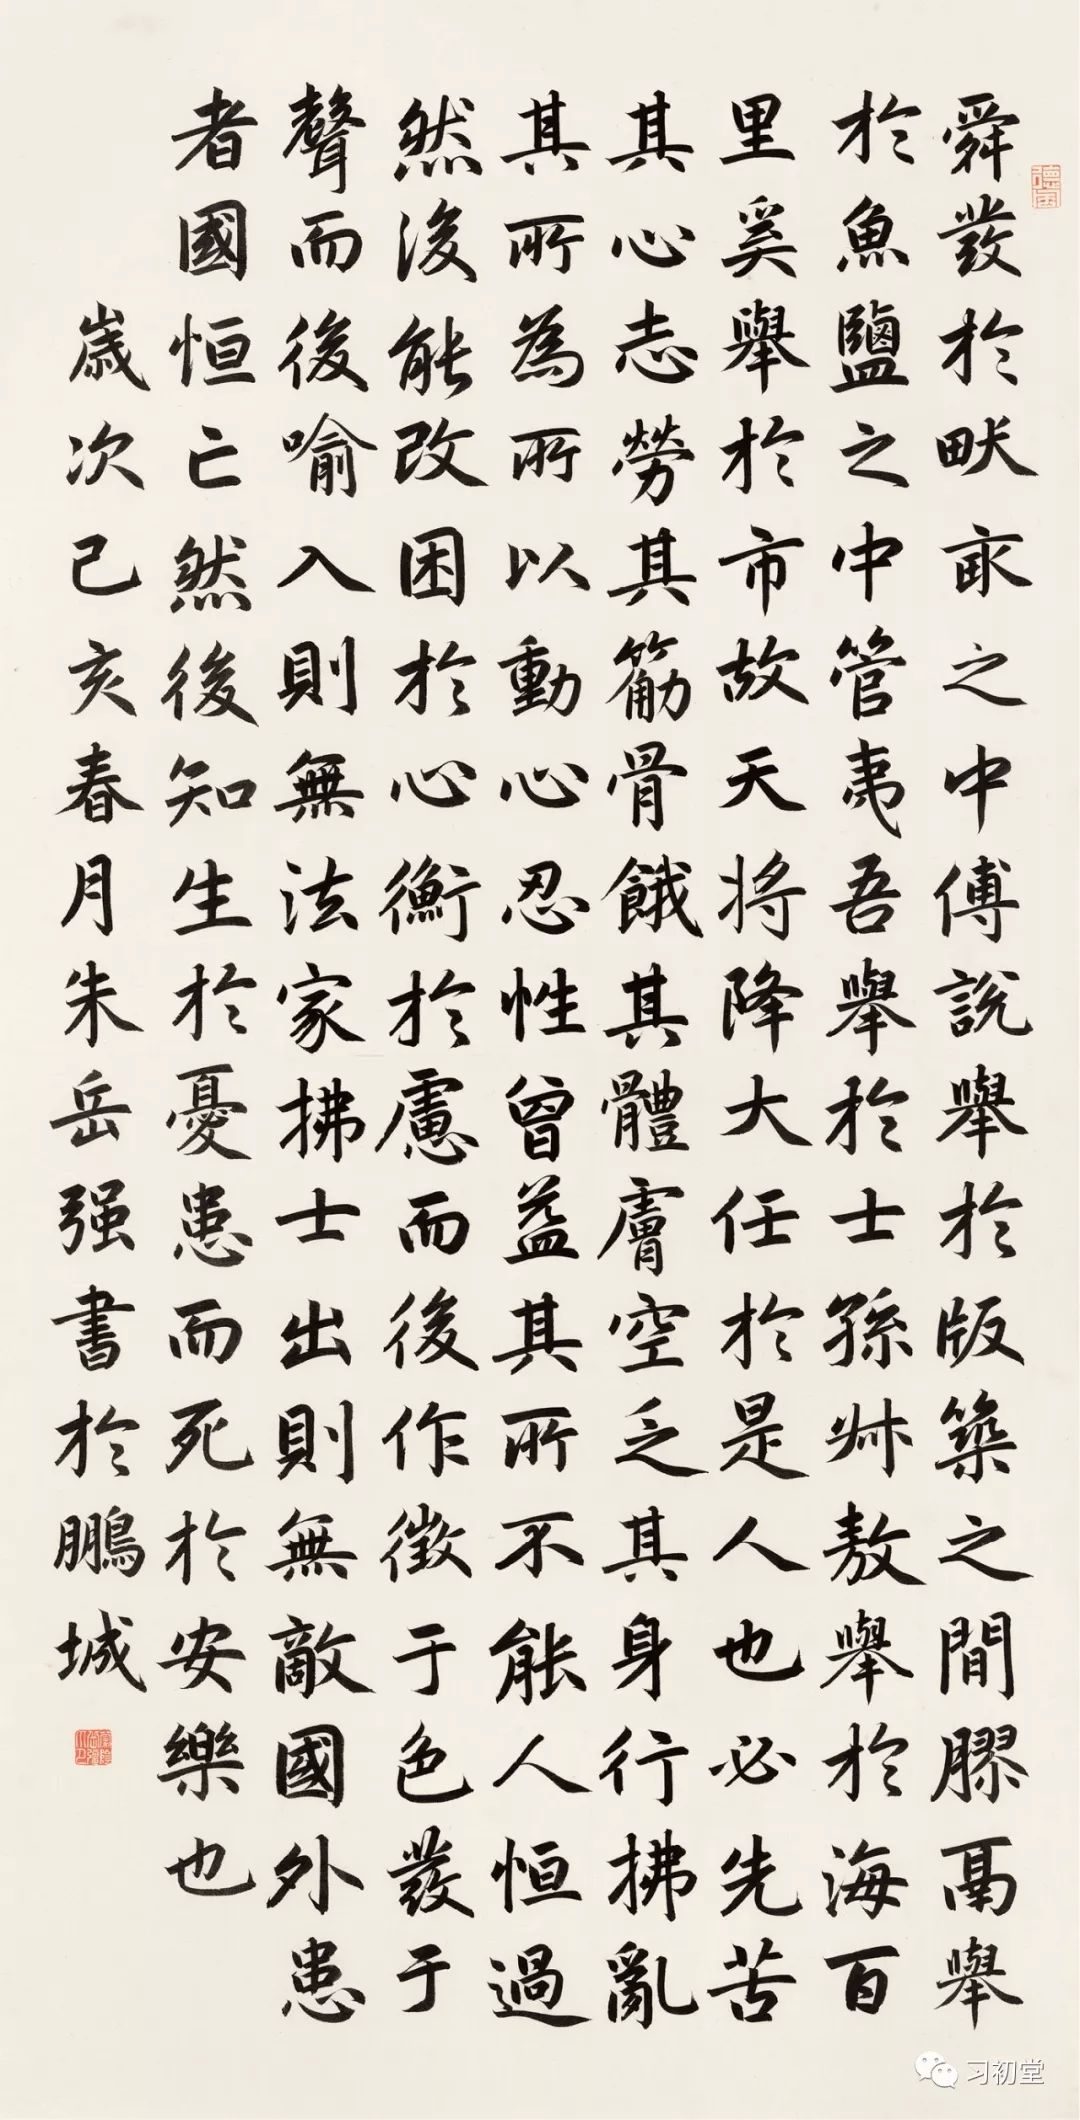 舜發於畎畝之中傅說舉於版築之間膠鬲舉
於魚鹽之中管夷吾舉於士孫叔敖舉於海百
里奚舉於市故天將降大任於是人也必先苦
其心志勞其筋骨餓其體膚空乏其身行拂亂
其所為所以動心忍性曾益其所不能人恒過
然後能改困於心衡於慮而後作徵于色發于
聲而後喻入則無法家拂士出則無敵國外患
者國恒亡然後知生於憂患而死於安樂也
歲次己亥春月朱岳强書於鵬城
习初堂